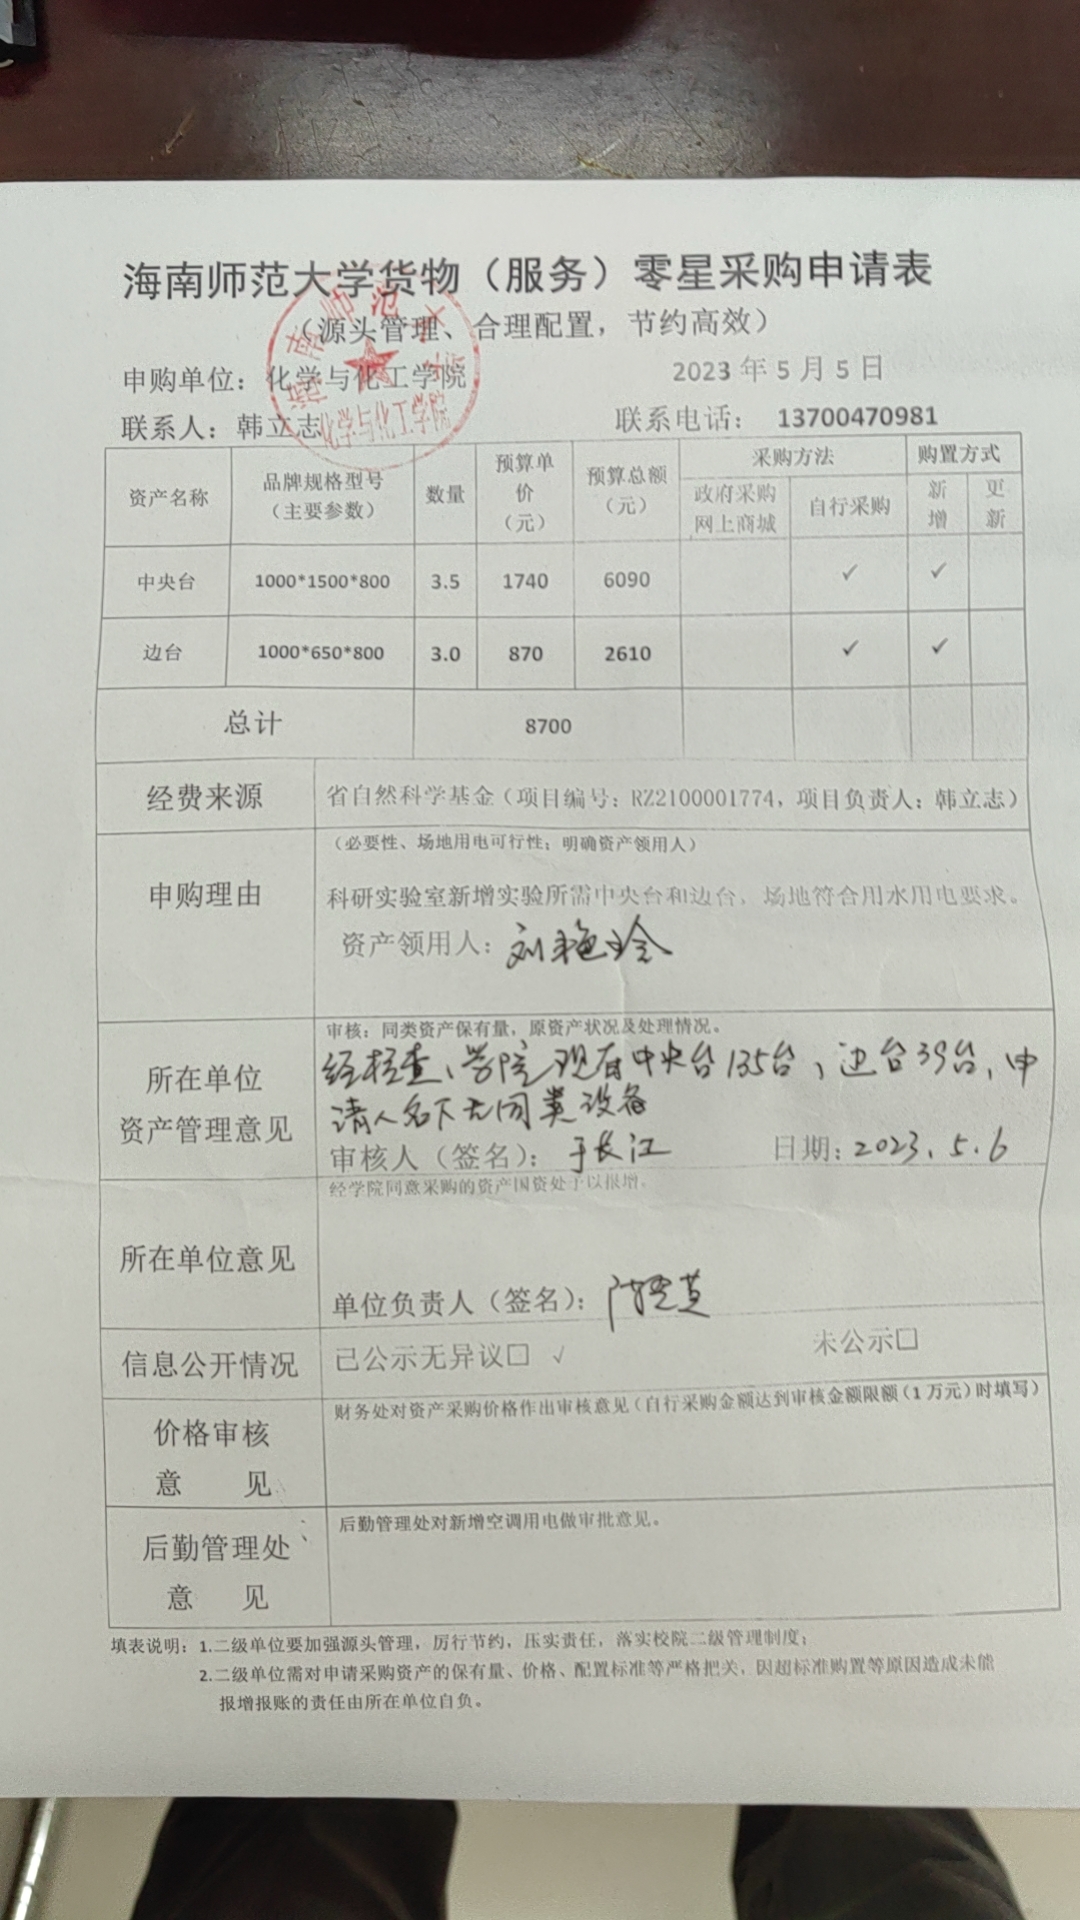 海南师范大学货物（服务）零星采购申请表
（源头管理、合理配置，节约高效）
申购单位：化学与化工学院 2023 年 5 月 5 日
联系人：韩立志 联系电话： 13700470981
海南师范大学
化学与化工学院
资产名称 品牌规格型号（主要参数） 数量 预算单价（元） 预算总额（元） 采购方法 购置方式
政府采购网上商城 自行采购 新增 更新
中央台 1000*1500*800 3.5 1740 6090 ✓ ✓
边台 1000*650*800 3.0 870 2610 ✓ ✓
总计 8700
经费来源 省自然科学基金（项目编号：RZ2100001774，项目负责人：韩立志）
（必要性、场地用电可行性；明确资产领用人）
申购理由 科研实验室新增实验所需中央台和边台，场地符合用水用电要求。
资产领用人：刘艳玲
审核：同类资产保有量，原资产状况及处理情况。
所在单位 经核查、学院现有中央台135台，边台39台，申
资产管理意见 请人名下无同类设备
审核人（签名）：于长江 日期：2023.5.6
经学院同意采购的资产国资处予以报增。
所在单位意见
单位负责人（签名）：
信息公开情况 已公示无异议□ √ 未公示□
财务处对资产采购价格作出审核意见（自行采购金额达到审核金额限额（1 万元）时填写）
价格审核
意 见
后勤管理处对新增空调用电做审批意见。
后勤管理处
意 见
填表说明：1.二级单位要加强源头管理，厉行节约，压实责任，落实校院二级管理制度；
2.二级单位需对申请采购资产的保有量、价格、配置标准等严格把关，因超标准购置等原因造成未能
报增报账的责任由所在单位自负。